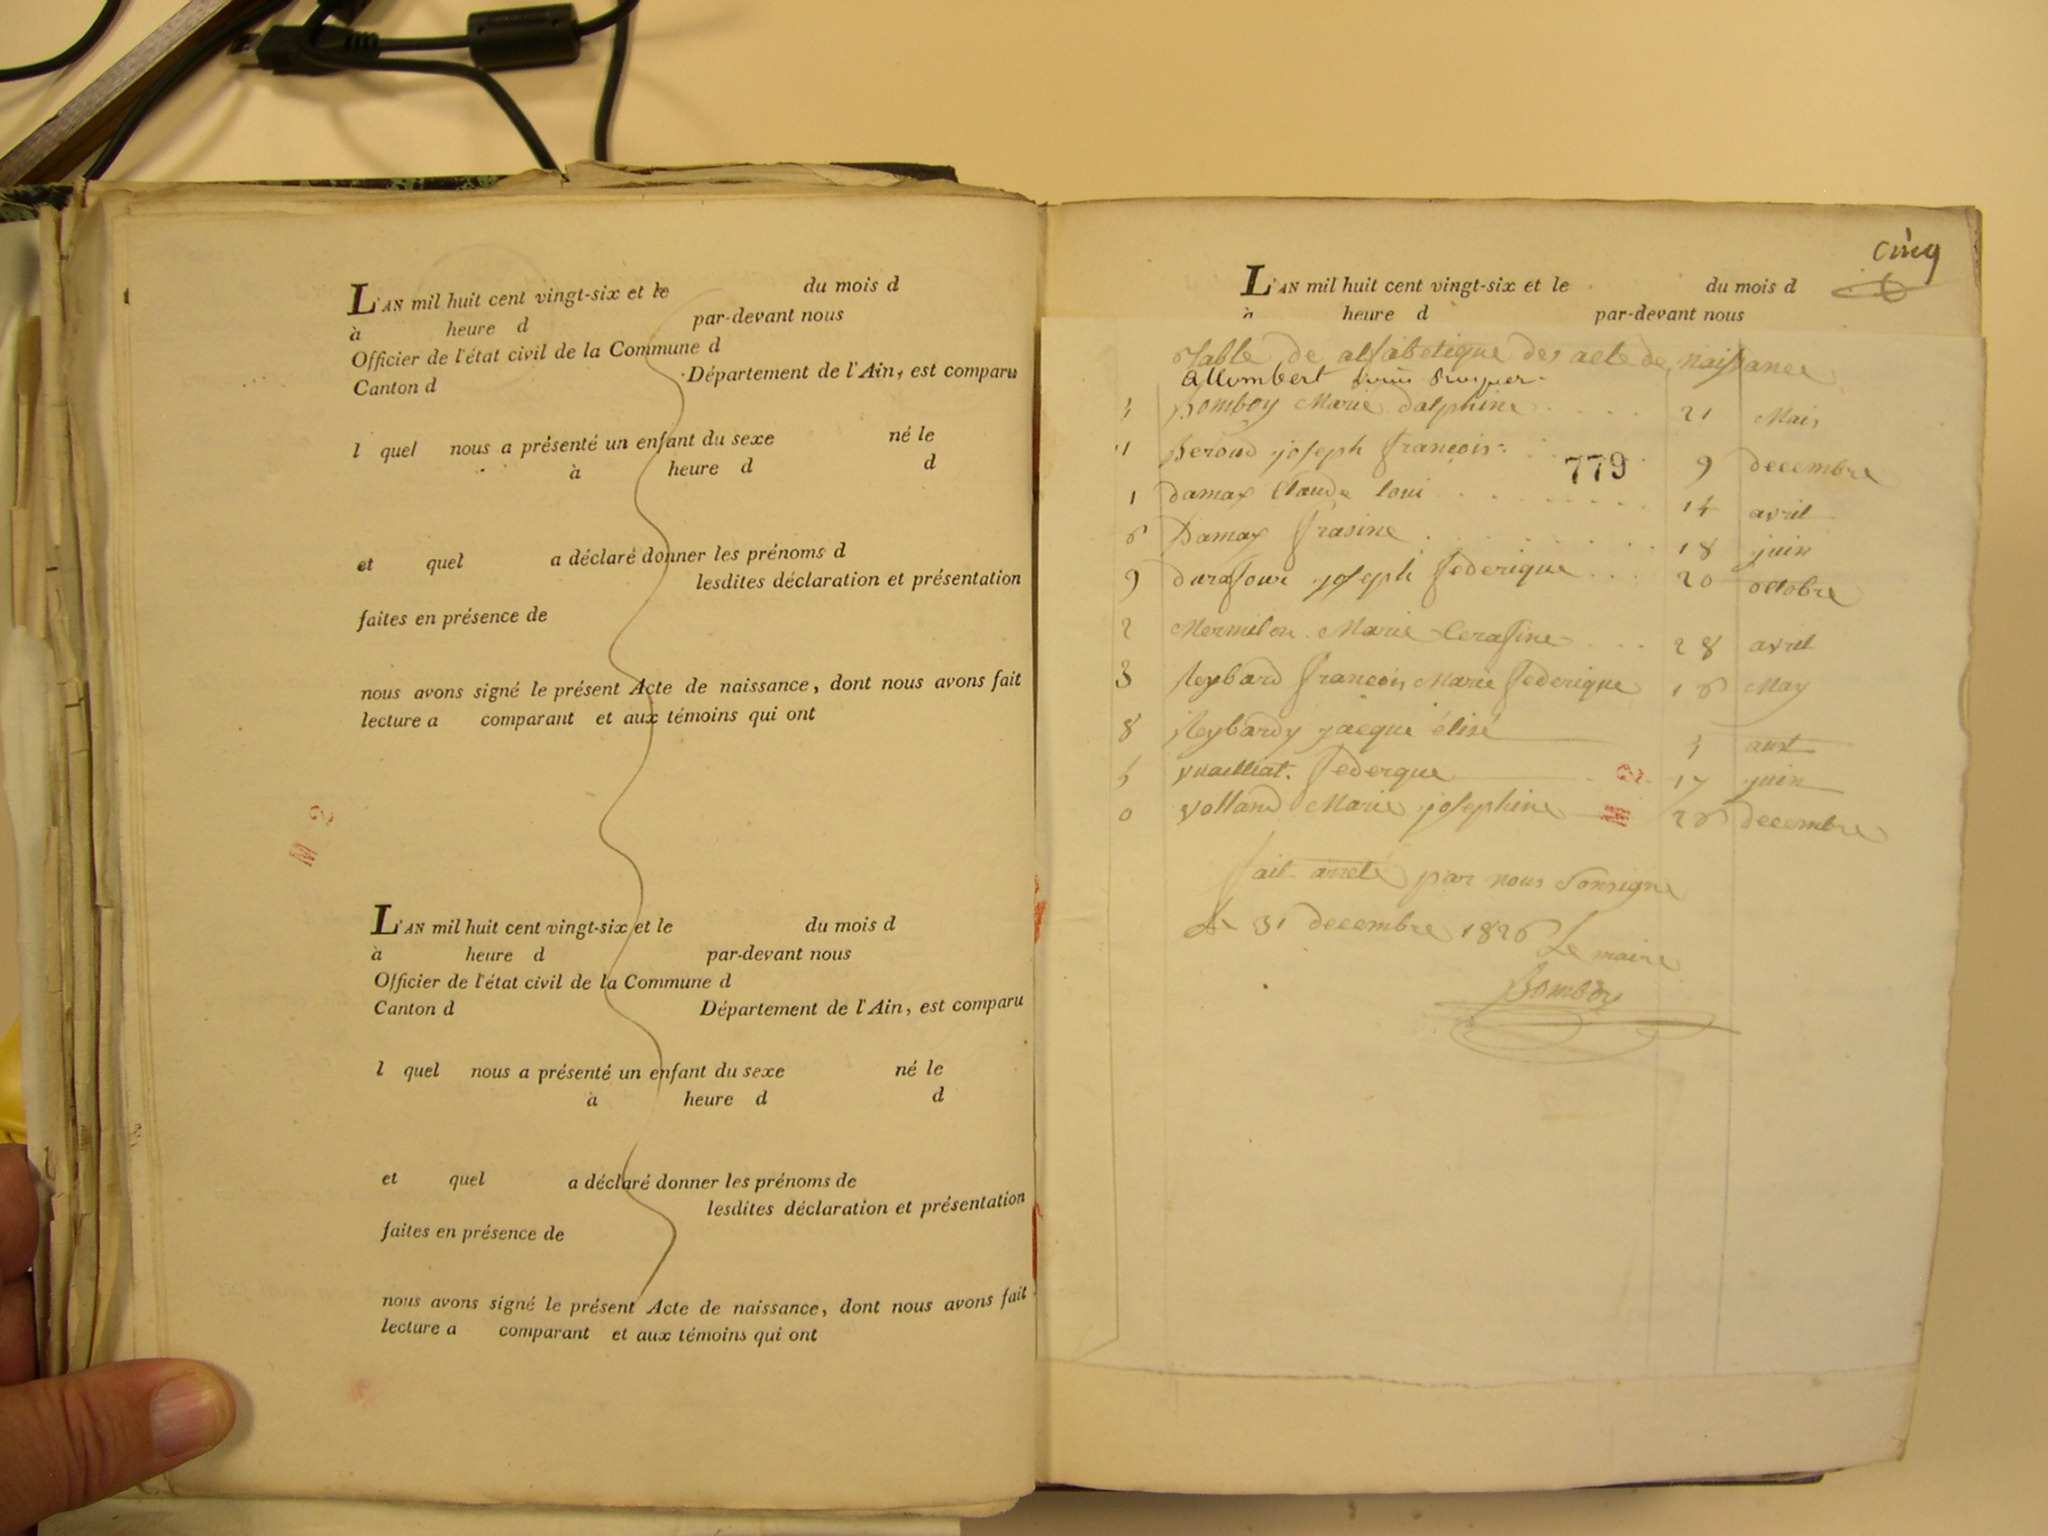 L'AN mil huit cent vingt-six et le du mois d
à heure d par-devant nous
Officier de l'état civil de la Commune d
Canton d Département de l'Ain, est comparu
l quel nous a présenté un enfant du sexe né le
à heure d d
et quel a déclaré donner les prénoms d
lesdites déclaration et présentation
faites en présence de
nous avons signé le présent Acte de naissance, dont nous avons fait
lecture a comparant et aux témoins qui ont
L'AN mil huit cent vingt-six et le du mois d
à heure d par-devant nous
Officier de l'état civil de la Commune d
Canton d Département de l'Ain, est comparu
l quel nous a présenté un enfant du sexe né le
à heure d d
et quel a déclaré donner les prénoms de
lesdites déclaration et présentation
faites en présence de
nous avons signé le présent Acte de naissance, dont nous avons fait
lecture a comparant et aux témoins qui ont
cinq
L'AN mil huit cent vingt-six et le du mois d
à heure d par-devant nous
Table de alfabetique des acte de naissance
Allombert
Bomboy Marie dalphine 21 Mai
11 Beroud joseph françois 9 decembre
779
1 damax Claude loui 14 avril
6 Damax 18 juin
9 durafour joseph federique 20 octobre
2 Mermilon Marie Cerafine 28 avril
3 Reybard francois Marie federique 16 May
8 Reybardy jacque élisé aust
vuaillat federque 17 juin
0 volland Marie josephine 26 decembre
fait arreté par nous Sonsigne
Le 31 decembre 1826
Le maire
Bomboy